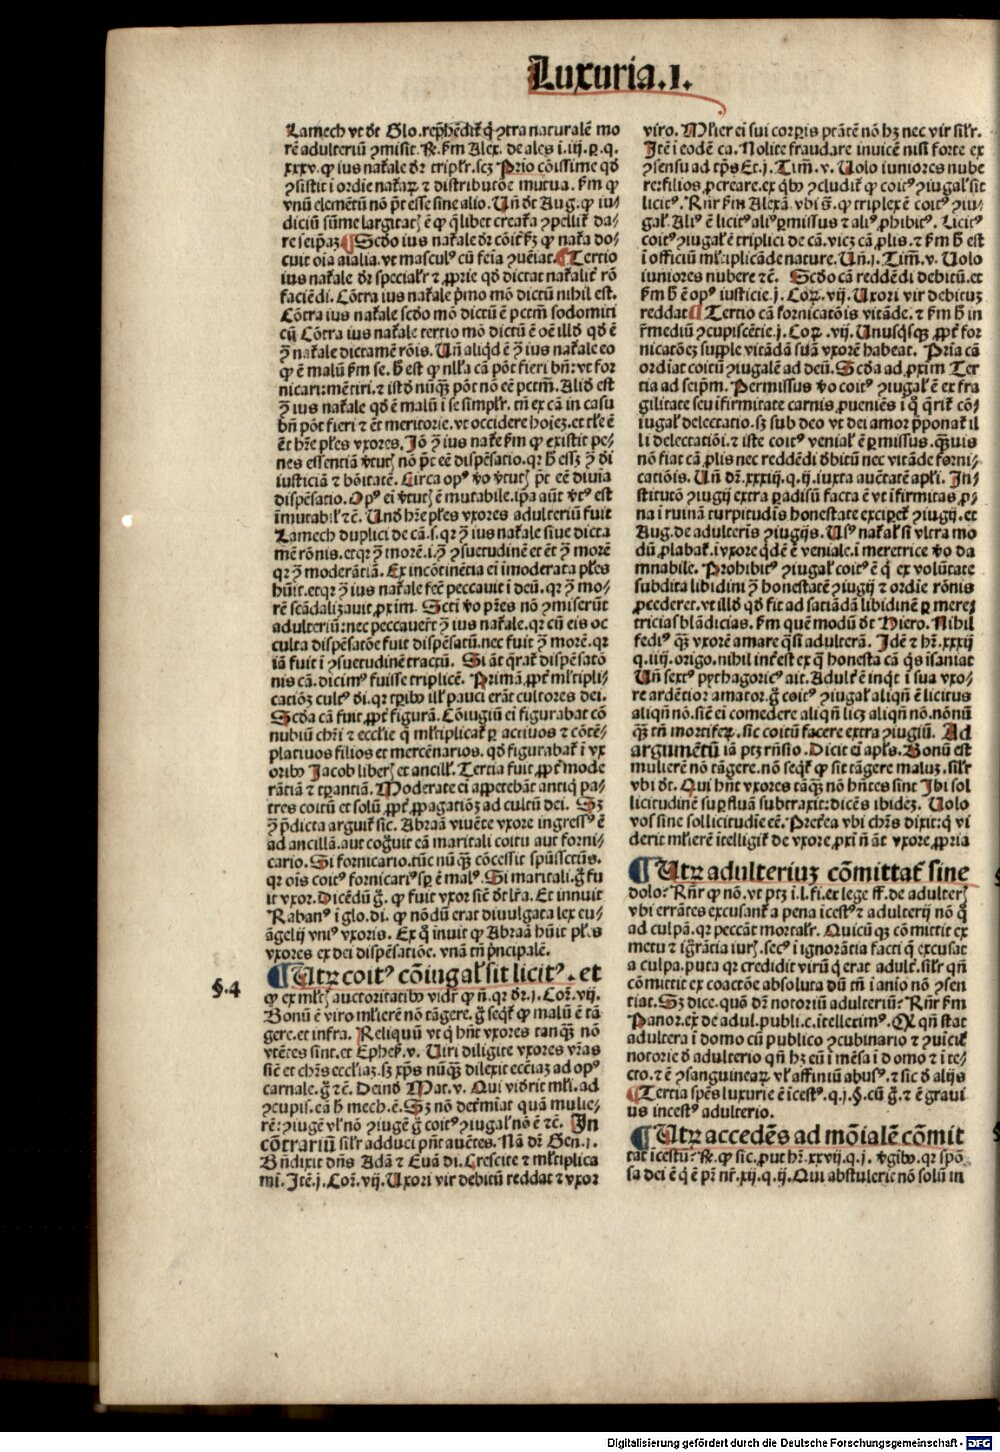 Luxuria.I.
Lamech vt dt Glo. rep̄hēdit᷑ q̄ ꝯtra naturalē mo
rē adulteriū ꝯmisit. R̄. ẜm Alex. de ales i. iij. p. q.
xxxv. ꝙ ius nat᷑ale dr̄ triplr̄. scz Prio cōissime qd̄
ꝯsistit i ordie nat᷑aꝝ ⁊ distributōe mutua. ẜm ꝙ
vnū elemētū nō pt̄ esse sine alio. Vn̄ dt Aug. ꝙ iu/
diciū sūme largitatꝭ ē ꝙ q̄libet creat᷑a ꝯpellit᷑ da/
re seip̄aꝫ ¶ Scdo ius nat᷑ale dr̄ cōit᷑ ẜꝫ ꝙ nat᷑a do/
cuit oīa aīalia. vt masculꝰ cū feīa ꝯueīat. ¶ Tertio
ius nat᷑ale dr̄ specialr̄ ⁊ ꝓprie qd̄ dictat nat᷑alit᷑ rō
faciēdi. Cōtra ius nat᷑ale p̄mo mō dictū nihil est.
Cōtra ius nat᷑ale scdo mō dictū ē pctm̄ sodomiti
cū Cōtra ius nat᷑ale tertio mō dictū ē oē illd̄ qd̄ ē
ꝯ̄ nat᷑ale dictamē rōis. Vn̄ aliqd̄ ē ꝯ̄ ius nat᷑ale eo
ꝙ ē malū ẜm se. h̄ est ꝙ nll̄a cā pōt fieri bn̄: vt for
nicari: mētiri. ⁊ istd̄ nūq̄ꝫ pōt nō eē pctm̄. Alid̄ est
ꝯ̄ ius nat᷑ale qd̄ ē malū i se simplr̄. tn̄ ex cā in casu
bn̄ pōt fieri ⁊ ēt meritorie. vt occidere hoieꝫ. et tl̄e ē
ēt hr̄e pl̄es vxores. Jō ꝯ̄ ius nat᷑e ẜm ꝙ existit pe/
nes essentiā v̄tutꝭ nō pt̄ eē dispēsatio. qr h̄ essꝫ ꝯ̄ di
iusticiā ⁊ bōitatē. Circa opꝰ v̄o v̄tutꝭ pt̄ eē diuīa
dispēsatio. Opꝰ ei v̄tutꝭ ē mutabile. ip̄a aūt v̄tꝰ est
īmutabil᷑ ⁊c̄. Vnd̄ hr̄e pl̄es vxores adulteriū fuit
Lamech duplici de cā. s. qr ꝯ̄ ius nat᷑ale siue dicta
mē rōnis. etqr ꝯ̄ morē. i. ꝯ̄ ꝯsuetudinē et ēt ꝯ̄ morē
qr ꝯ̄ moderātiā. Ex incōtinētia ei imoderata pl̄es
hūit. etqr ꝯ̄ ius nat᷑ale fec̄ peccauit i deū. qr ꝯ̄ mo/
rē scādalizauit ꝓxim̄. Scti v̄o p̄res nō ꝯmiserūt
adulteriū: nec peccauer᷑t ꝯ̄ ius nat᷑ale. qr cū eis oc
culta dispēsatōe fuit dispēsatū. nec fuit ꝯ̄ morē. qr
iā fuit i ꝯsuetudinē tractū. Si āt q̄rat᷑ dispēsatō
nis cā. dicimꝰ fuisse triplicē. Primā. ꝓpt᷑ ml̄tipli/
catiōꝫ cultꝰ di. qr tꝑib illꝭ pauci erāt cultores dei.
Scd̄a cā fuit ꝓpt᷑ figurā. Cōiugiū ei figurabat cō
nubiū chr̄i ⁊ eccl̄ie q̄ ml̄tiplicat᷑ ꝑ actiuos ⁊ cōtē/
platiuos filios et mercēnarios. qd̄ figurabat᷑ i vx
orib Jacob liberꝭ et ancillꝭ. Tertia fuit ꝓpt᷑ mode
rātiā ⁊ tꝑantiā. Moderate ei appetebāt antiq̄ pa/
tres coitū et solū ꝓpt᷑ ꝓpagatiōꝫ ad cultū dei. Sꝫ
ꝯ̄ p̄dicta arguit᷑ sic. Abraā viuēte vxore ingressꝰ ē
ad ancillā. aut cog̊uit eā maritali coitu aut forni/
cario. Si fornicario. tūc nūq̄ꝫ cōcessit spūssctūs.
qr oīs coitꝰ fornicariꝰ sp̄ ē malꝰ. Si maritali. g̊ fu
it vxor. Dicēdū g̊. ꝙ fuit vxor siē dt lr̄a. Et innuit
Rabanꝰ i glo. di. ꝙ nōdū erat diuulgata lex eu/
āgelij vniꝰ vxoris. Ex q̊ īnuit ꝙ Abraā hūit pl̄es
vxores ex dei dispēsatiōe. vnā tn̄ p̄ncipalē.
§.4
¶ Utꝝ coitꝰ cōiugal᷑ sit licitꝰ. et
ꝙ ex ml̄tꝭ auctoritatib vidr̄ ꝙ n̄. qr dr̄. j. Cor̄. vij.
Bonū ē viro ml̄ierē nō tāgere. g̊ seqt᷑ ꝙ malū ē tā
gere. et infra. Reliquū vt q̄ hn̄t vxores tanq̄ꝫ nō
vtētes sint. et Ephes̄. v. Viri diligite vxores vr̄as
siē et chr̄s eccl̄iaꝫ. sꝫ xp̄s nūq̄ꝫ dilexit eccīaꝫ ad opꝰ
carnale. g̊ ⁊c̄. Deind̄ Mat. v. Qui vid̄rit ml̄i. ad
ꝯcupis. eā h̄ mech. ē. Sꝫ nō det᷑miat quā mulie/
rē: ꝯiugē vl̄ nō ꝯiugē g̊ coitꝰ ꝯiugal᷑ nō ē ⁊c̄. In
cōtrariū silr̄ adduci pn̄t auētes. Nā dr̄ Gen. j.
Bn̄dixit dn̄s Adā ⁊ Euā di. Crescite ⁊ ml̄tiplica
mī. Jtē. j. Cor̄. vij. Uxori vir debitū reddat ⁊ vxor
viro. Ml̄ier ei sui corꝑis ptātē nō hꝫ nec vir silr̄.
Jtē i eodē ca. Nolite fraudare inuicē nisi forte ex
ꝯsensu ad tp̄s Et. j. Tim̄. v. Uolo iuniores nube
re: filios ꝓcreare. ex q̊ ꝯcludit᷑ ꝙ coitꝰ ꝯiugal᷑ sit
licitꝰ. Rn̄r ẜm Alexā. vbi s̄. ꝙ triplex ē coitꝰ ꝯiu/
gal᷑. Aliꝰ ē licitꝰ aliꝰ ꝑmissus ⁊ aliꝰ ꝓhibitꝰ. Licitꝰ
coitꝰ ꝯiugal᷑ ē triplici de cā. vicꝫ cā ꝓlis. ⁊ ẜm h̄ est
i officiū ml̄tiplicāde nature. Vn̄. j. Tim̄. v. Uolo
iuniores nubere ⁊c̄. Scdō cā reddēdi debitū. et
ẜm h̄ ē opꝰ iusticie. j. Corꝝ. vij. Uxori vir debituꝫ
reddat ¶ Tertio cā fornicatōis vitāde. ⁊ ẜm h̄ in
r̄mediū ꝯcupiscētie. j. Corꝝ. vij. Unusqꝰsqꝫ ꝓpt᷑ for
nicatōeꝫ supple vitādā suā vxorē habeat. Pria cā
ordiat coitū ꝯiugalē ad deū. Scd̄a ad ꝓxim̄ Ter
tia ad seipm̄. Permissus v̄o coitꝰ ꝯiugal᷑ ē ex fra
gilitate seu ifirmitate carnis ꝓueniēs i q̊ q̄rit᷑ cō/
iugal᷑ delectatio. sꝫ sub deo vt dei amor p̄ponat᷑ il
li delectatiōi. ⁊ iste coitꝰ venial᷑ ē ꝑmissus. q̄uis
nō fiat cā ꝓlis nec reddēdi d̄bitū nec vitāde forni/
catiōis. Vn̄ dr̄. xxxiij. q. ij. iuxta auētatē apl̄i. In/
stitutō ꝯiugij extra ꝑadisū facta ē vt ifirmitas ꝓ/
na i ruinā turpitudis honestate excipet᷑ ꝯiugij. et
Aug. de adulterīs ꝯiugijs. Usꝰ nat᷑al᷑ si vltra mo
dū ꝓlabat᷑. i vxore qd̄ē ē veniale. i meretrice v̄o da
mnabile. Prohibitꝰ ꝯiugal᷑ coitꝰ ē q̄ ex volūtate
subdita libidini ꝯ̄ honestatē ꝯiugij ⁊ ordiē rōnis
ꝓcederet. vt illd̄ qd̄ fit ad satiādā libidinē ꝑ mere;
tricias blādicias. ẜm quē modū dt Hiero. Nihil
fediꝰ q̄ꝫ vxorē amare q̄si adulterā. Jdē ⁊ hr̄. xxxij
q. iiij. origo. nihil int᷑est ex q̄ honesta cā q̄s isaniat
Vn̄ sextꝰ pythagoricꝰ ait. Adult᷑ ē inqt᷑ i sua vxo/
re ardētior amator. g̊ coitꝰ ꝯiugal᷑ aliqn̄ ē licitus
aliqn̄ nō. siē ei comedere aliqn̄ licꝫ aliqn̄ nō. nōnū
q̄ꝫ tn̄ mortifeꝝ. sic coitū facere extra ꝯiugiū. Ad
argumētū iā ptꝫ rn̄sio. Dicit ei apl̄s. Bonū est
mulierē nō tāgere. nō seqt᷑ ꝙ sit tāgere maluꝫ. silr̄
vbi dt. Qui hn̄t vxores tāq̄ꝫ nō hn̄tes sint Jbi sol
licitudinē suꝑfluā subtraxit: dicēs ibideꝫ. Uolo
vos sine sollicitudie eē. Pret᷑ea vbi chr̄s dixit: q̄ vi
derit ml̄ierē itelligit᷑ de vxore ꝓxi n̄ āt vxore ꝓpria
¶ Utꝝ adulteriuꝫ cōmittat᷑ sine
dolo: Rn̄r ꝙ nō. vt ptꝫ i. l. fi. ex lege ff. de adulterꝭ
vbi errātes excusant᷑ a pena icestꝰ ⁊ adulterij nō q̄
ad culpā. qr peccāt mortalr̄. Quicūqꝫ cōmittit ex
metu ⁊ ig̊rātia iurꝭ. secꝰ i ignorātia facti q̄ excusat
a culpa. puta qr credidit virū q̄ erat adult᷑. silr̄ qn̄
cōmittit ex coactōe absoluta dū tn̄ i aīo nō ꝯsen
tiat. Sꝫ dice. quō dr̄ notoriū adulteriū: Rn̄r ẜm
Panor. ex de adul. publi. c. itelleximꝰ. Qꝫ qn̄ stat
adultera i domo cū publico ꝯcubinario ⁊ ꝯuīcit᷑
notorie d̄ adulterio qn̄ hꝫ eū i mēsa i domo ⁊ i te/
cto. ⁊ ē ꝯsanguineaꝝ vl᷑ affiniū abusꝰ. ⁊ sic d̄ alijs
¶ Tertia spēs luxurie ē icestꝰ. q. j. §. cū g̊. ⁊ ē graui
us incestꝰ adulterio.
¶ Utꝝ accedēs ad mōialē cōmit
tat icestū: R̄. ꝙ sic. put hr̄. xxvij. q. j. v̄gib. qr spō/
sa dei ē q̄ ē pr̄ nr̄. xij. q. ij. Qui abstulerit nō solū in
Digitalisierung gefördert durch die Deutsche Forschungsgemeinschaft - DFG